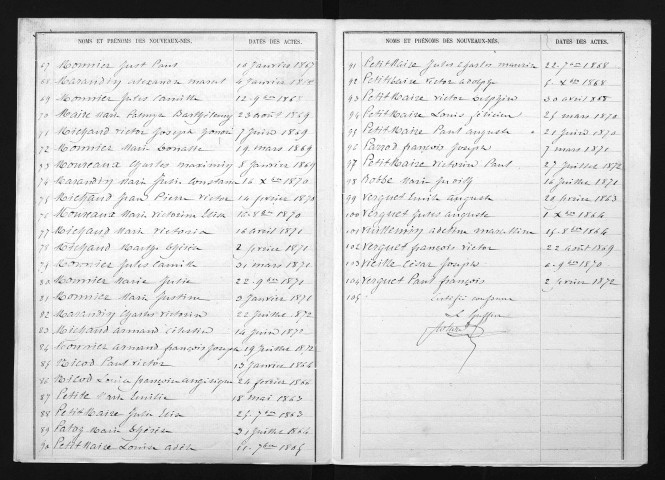 NOMS ET PRÉNOMS DES NOUVEAUX-NÉS. DATES DES ACTES.
67 Monnier Just Paul 10 Janvier 1867
68 Marandin alexandre 4 Janvier
69 Monnier Jules Camille 12 9bre 1868
70 Maire Marie Palmyre Barthélemy 23 août 1869
71 Michaud Victor Joseph 7 Juin 1869
72 Monnier Marie 19 mars 1869
73 Moureaux Charles maximin 8 Janvier 1869
74 Marandin Marie Julie Constance 16 Xbre 1870
75 Michaud Jean Pierre Victor 14 février 1870
76 Moureaux Marie Victorine Elisa 10 8bre 1870
77 Michaud Marie Victoria 16 avril 1871
78 Michaud Marthe 2 février 1871
79 Monnier Jules Camille 31 mars 1871
80 Monnier Marie Julie 22 9bre 1871
81 Monnier Marie Justine 3 Janvier 1871
82 Marandin Charles Victorin 22 Juillet 1872
83 Michaud armand Célestin 14 Juin 1872
84 Monnier armand françois Joseph 19 Juillet 1872
85 Nicod Paul Victor 13 Janvier 1864
86 Nicod Louise françoise angélique 24 février 1866
87 Petite Marie Emilie 18 mai 1863
88 Petit Maire Julie Elisa 25 7bre 1863
89 Marie 31 Juillet 1864
90 Petit Maire Louise 11 7bre 1865
NOMS ET PRÉNOMS DES NOUVEAUX-NÉS. DATES DES ACTES.
91 Petit Maire Jules Charles maurice 22 7bre 1868
92 Petit Maire Victor adolphe 5 Xbre 1868
93 Petit Maire Victor Delphin 30 avril 1868
94 Petit Maire Louis félicien 25 mars 1870
95 Petit Maire Paul auguste 21 Juin 1870
96 Parod françois Joseph 7 mars 1871
97 Petit Maire Victorin Paul 27 Juillet 1872
98 Marie 16 Juillet 1871
99 Verguet Emile auguste 20 février 1863
100 Verguet Jules auguste 1 Xbre 1864
101 marcelline 15 8bre 1864
102 Verguet françois Victor 22 août 1869
103 Vieille César Joseph 2 9bre 1870
104 Verguet Paul françois 2 février 1872
105
Le Greffier